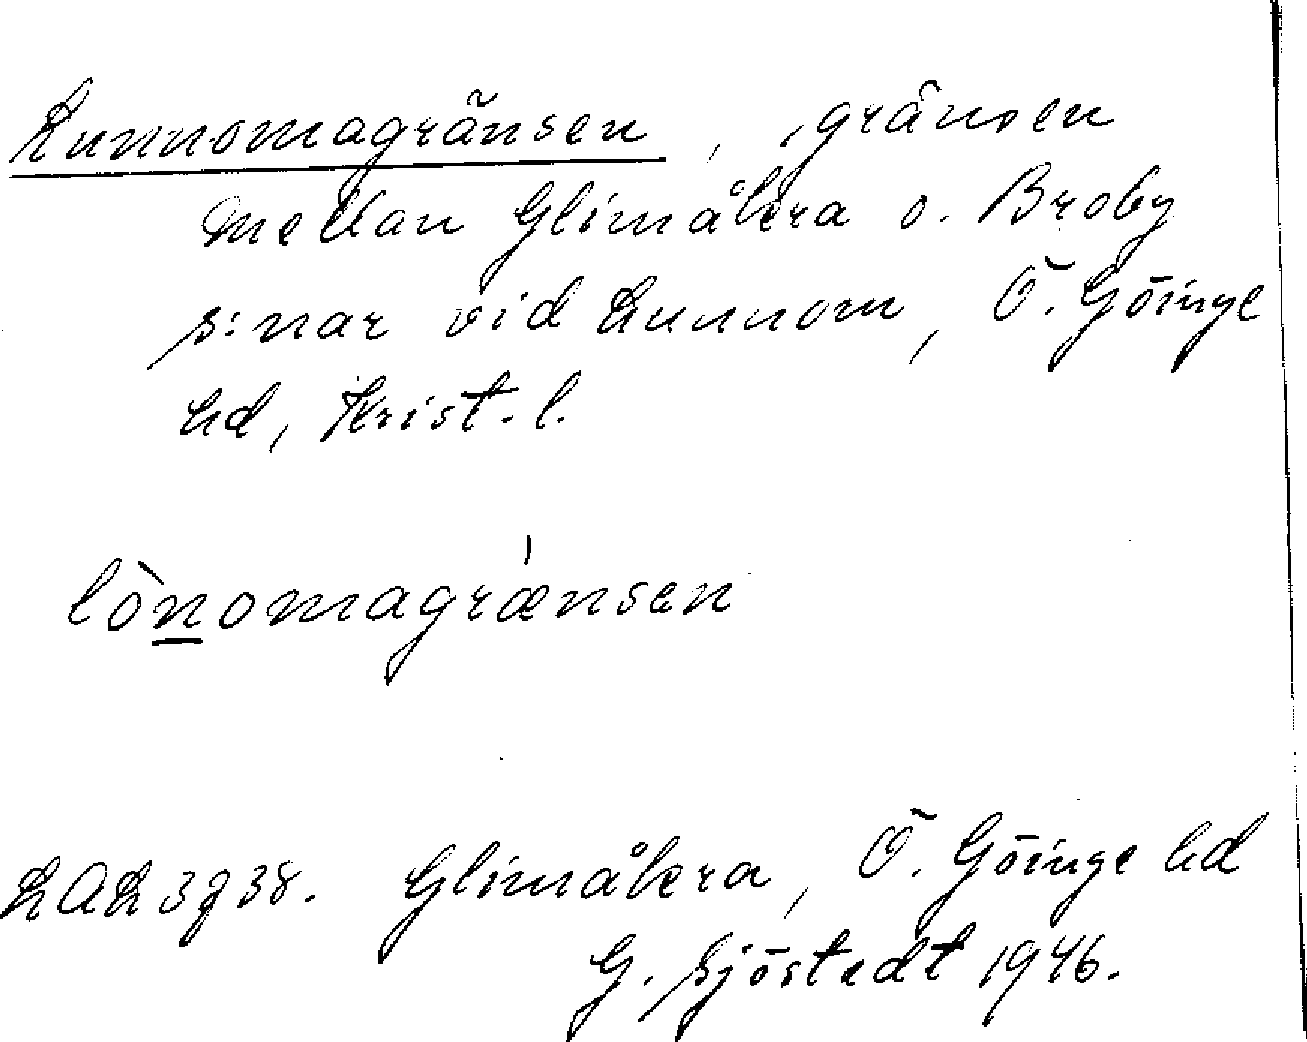 Lunnomagränsen, gränsen
mellan Glimåkra o. Broby
s:nar vid Lunnom, Ö. Göinge
hd, Krist. l.
lònomagrǽnsen
LAL 3938. Glimåkra, Ö. Göinge hd
G. Sjöstedt 1946.